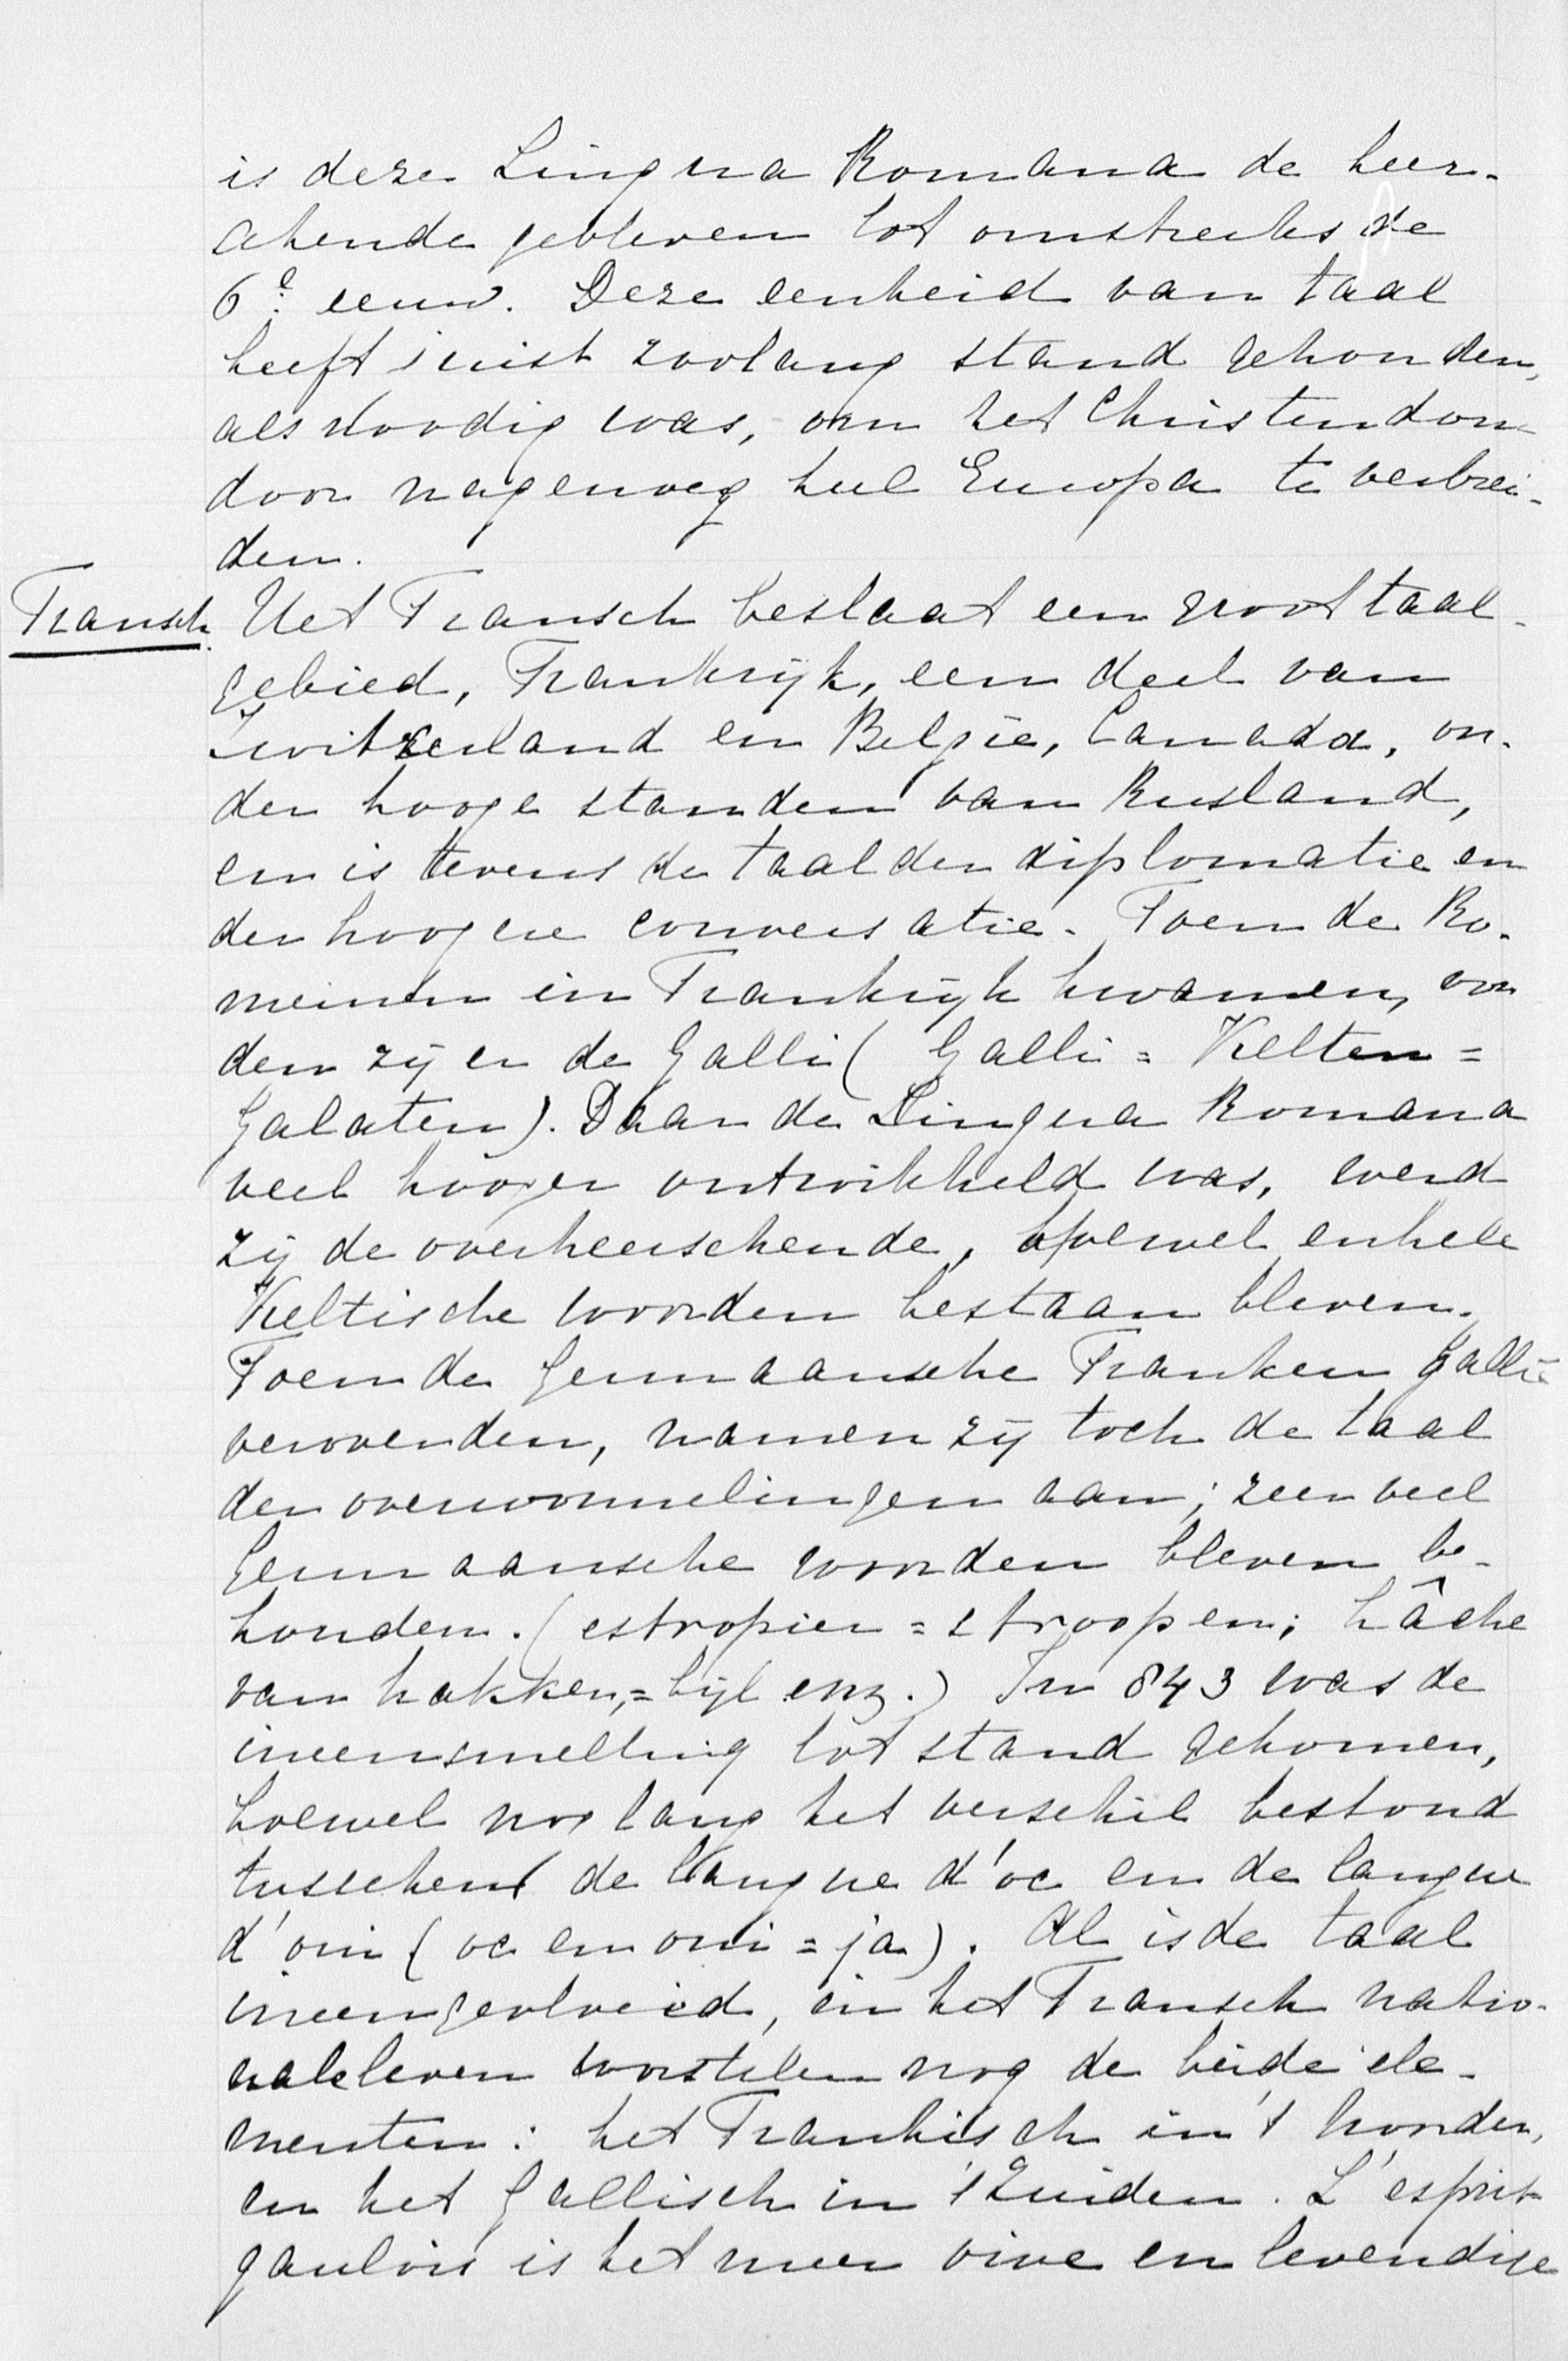 is deze Lingua Romana de heer-
schende gebleven tot omstreeks de
6e eeuw. Deze eenheid van taal
heeft juist zoolang stand gehouden,
als noodig was, om het Christendom
door nagenoeg heel Europa te verbrei-
den.
Fransch. Het Fransch beslaat een groot taal-
gebied, Frankrijk, een deel van
Zwitzerland en België, Canada, on-
der hooge standen van Rusland,
en is tevens de taal der diplomatie en
der hoogere conversatie. Toen de Ro-
meinen in Frankrijk kwamen, von
den zij er de Galli (Galli = Kelten =
Galaten). Daar de Lingua Romana
veel hooger ontwikkeld was, werd
zij de overheerschende, hoewel enkele
Keltische woorden bestaan bleven.
Toen de Germaansche Franken Gallië
veroverden, namen zij toch de taal
der overwonnelingen aan; zeer veel
Germaansche woorden bleven be-
houden. (estropier = stroopen; hâche
van hakken, = bijl enz.) In 843 was de
ineensmelting tot stand gekomen,
hoewel nog lang het verschil bestond
tusschen de langue d'oc en de langue
d'oui (oc en oui = ja). Al is de taal
ineengevloeid, in het Fransch natio-
nale leven worstelen nog de beide ele-
menten: het Frankisch in 't Noorden,
en het Gallisch in 't Zuiden. L'esprit
gaulois is het meer vive en levendige